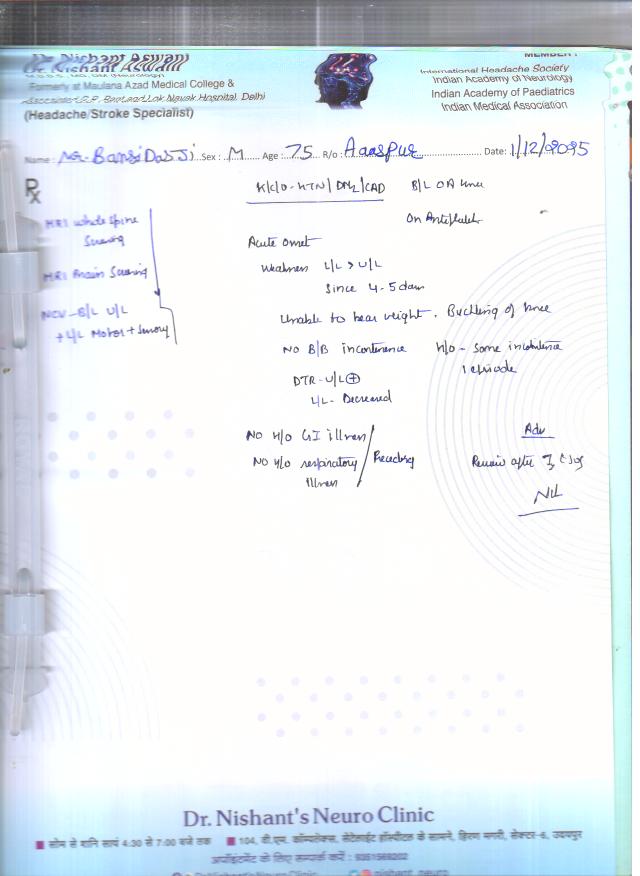 Dr. Nishant Aswani
Formerly at Maulana Azad Medical College &
Associated G.P. Pant and Lok Nayak Hospital, Delhi
(Headache/Stroke Specialist)
MEMBER :
International Headache Society
Indian Academy of Neurology
Indian Academy of Paediatrics
Indian Medical Association
Name : Mr. Bansi Das Ji Sex : M Age : 75 R/o : Date: 1/12/2025
Rx
K/C/O - HTN / DM2 / CAD B/L OA knee
On Antiplatelet
MRI whole spine
Screening
MRI Brain Screening
NCV - B/L U/L
+ L/L Motor + Sensory
Acute onset
Weakness L/L > U/L
Since 4-5 days
Unable to bear weight, Buckling of knee
No B/B incontinence H/o - Some incontinence
1 episode
DTR - U/L ⊕
L/L - Decreased
No H/o GI illness
No H/o respiratory illness / Preceding
Adv
Review after
Dr. Nishant's Neuro Clinic
■ सोम से शनि सायं 4:30 से 7:00 बजे तक ■ 104, वी.एम. कॉम्पलेक्स, सेटेलाईट हॉस्पीटल के सामने, हिरण मगरी, सेक्टर-6, उदयपुर
अपॉइंटमेंट के लिए सम्पर्क करें : 9351569202